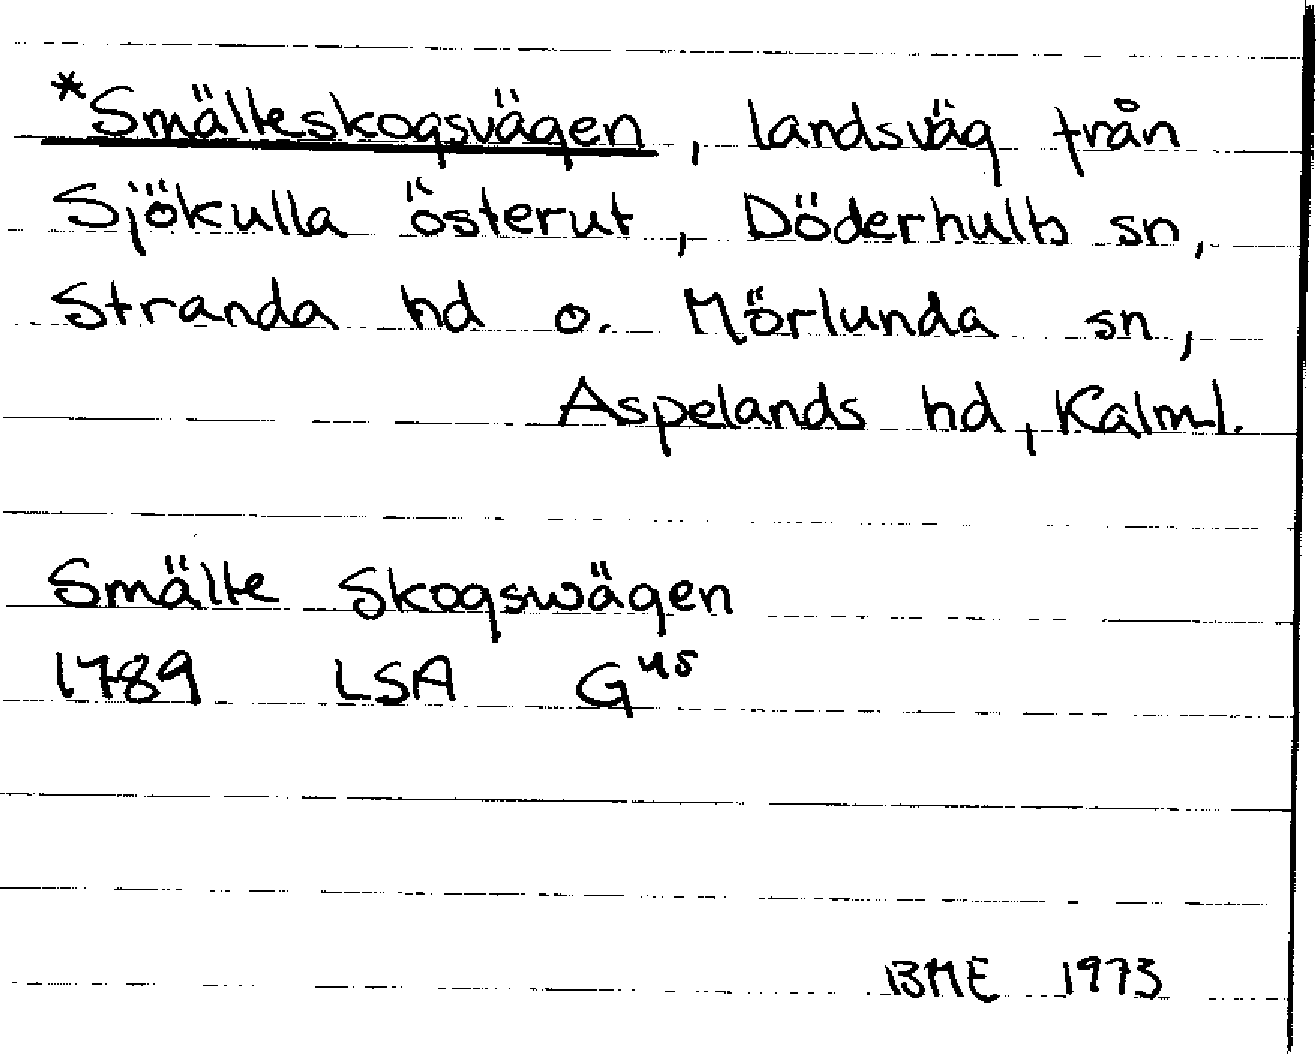 *Smälteskogsvägen, landsväg från
Sjökulla österut, Döderhults sn,
Stranda hd o. Mörlunda sn,
Aspelands hd, Kalm.l.
Smälte Skogswägen
1789 LSA G45
BME 1973